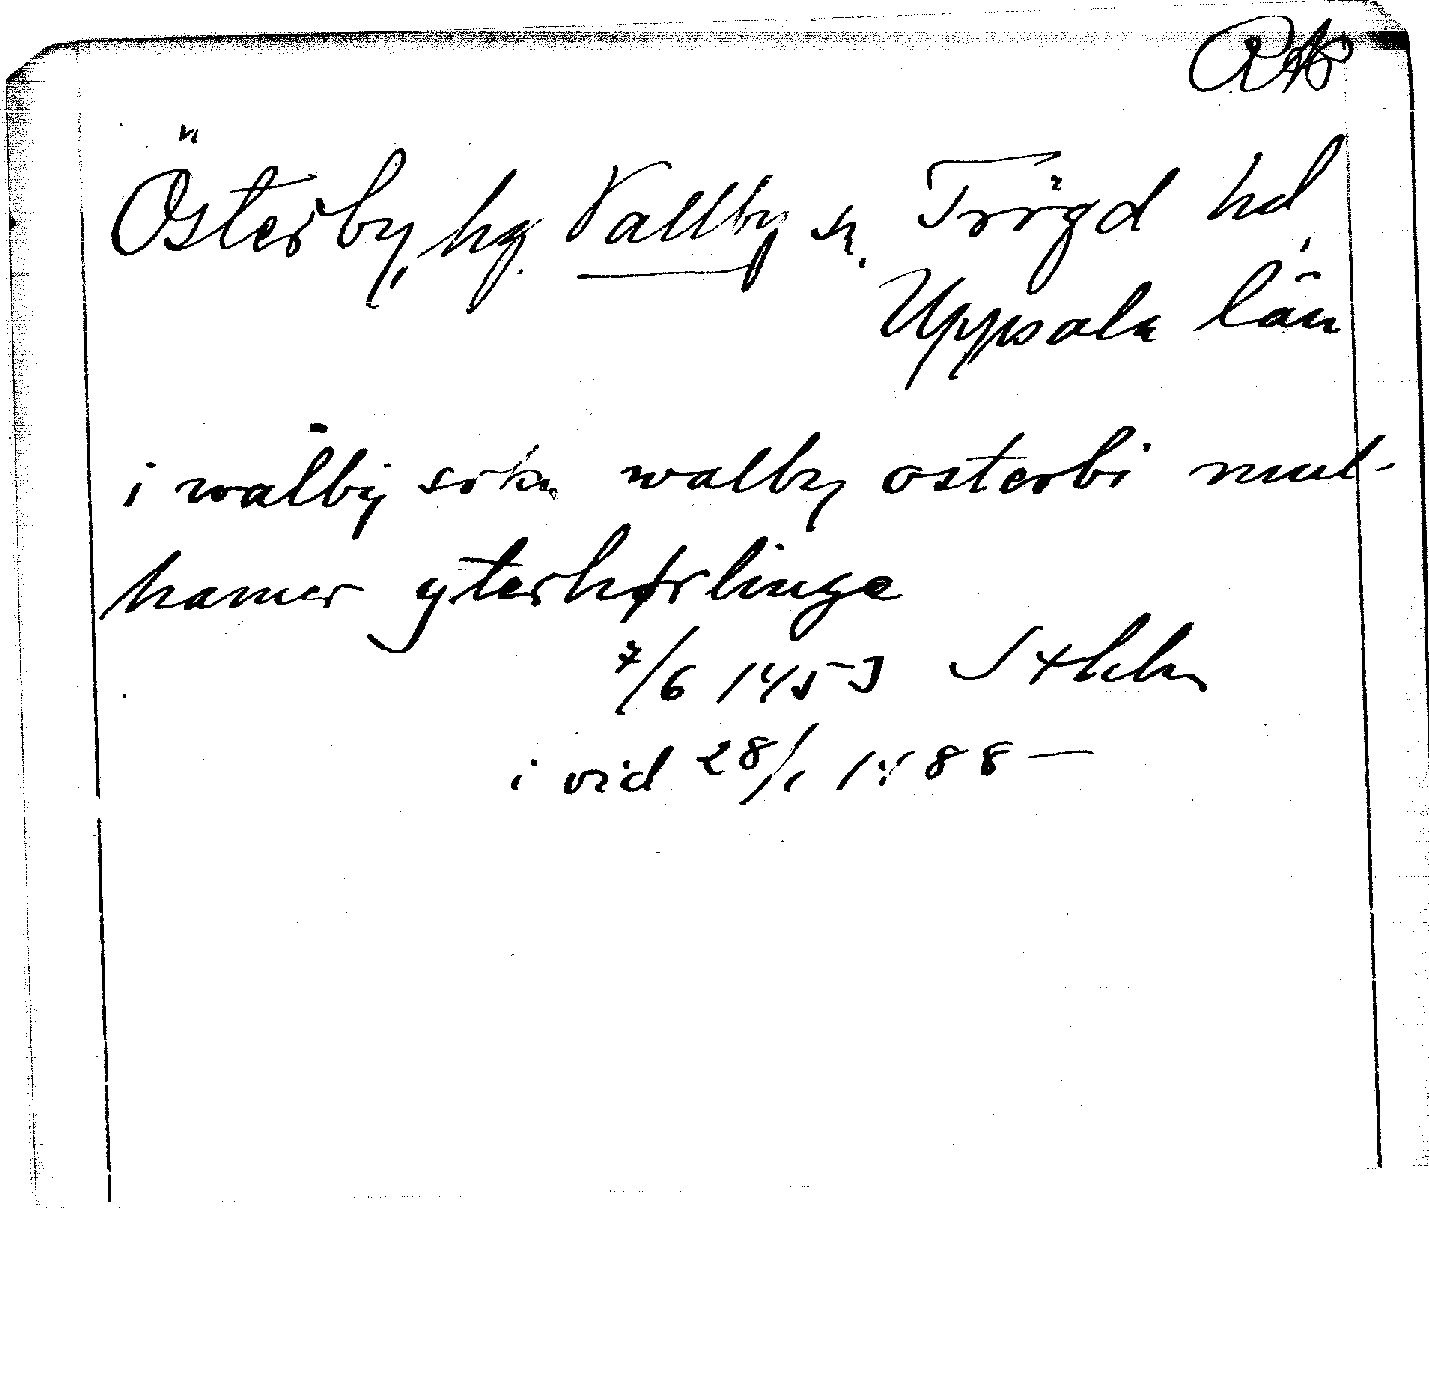 RAP
Österby, hg. Vallby sn. Trögd hd,
Uppsala län
i walby sokn walby osterbi mul-
hamer yterhørlinge
7/6 1453 Sthlm
i vid 28/1 1488 —